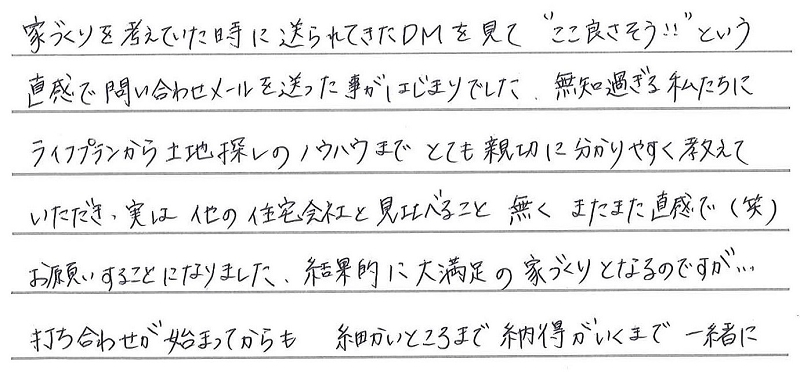 家づくりを考えていた時に送られてきたDMを見て "ここ良さそう!!"という
直感で問い合わせメールを送った事がはじまりでした。無知過ぎる私たちに
ライフプランから土地探しのノウハウまでとても親切に分かりやすく教えて
いただき、実は他の住宅会社と見比べること無くまたまた直感で(笑)
お願いすることになりました。結果的に大満足の家づくりとなるのですが…
打ち合わせが始まってからも 細かいところまで納得がいくまで一緒に